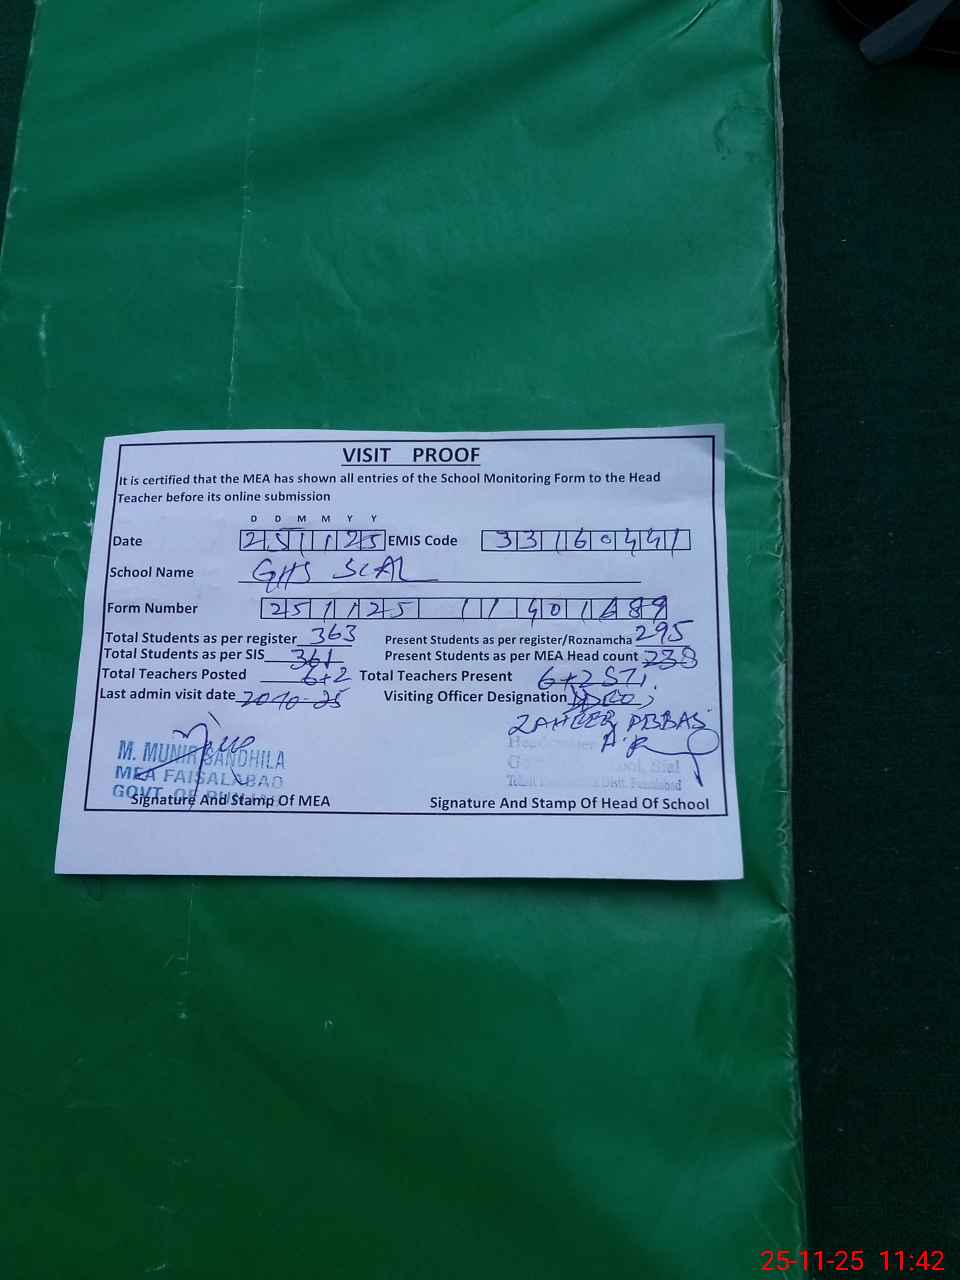 VISIT PROOF
It is certified that the MEA has shown all entries of the School Monitoring Form to the Head
Teacher before its online submission
D D M M Y Y
Date 251125 EMIS Code 33160441
School Name GHS SIAL
Form Number 251125 11401689
Total Students as per register 363 Present Students as per register/Roznamcha 295
Total Students as per SIS 361 Present Students as per MEA Head count 238
Total Teachers Posted 6+2 Total Teachers Present 6+2 STI
Last admin visit date 20-10-25 Visiting Officer Designation
ZAHEER ABBAS
M. MUNIR SANDHILA
MEA FAISALABAD
GOVT. OF PUNJAB
Sial
Signature And Stamp Of MEA Signature And Stamp Of Head Of School
25-11-25 11:42